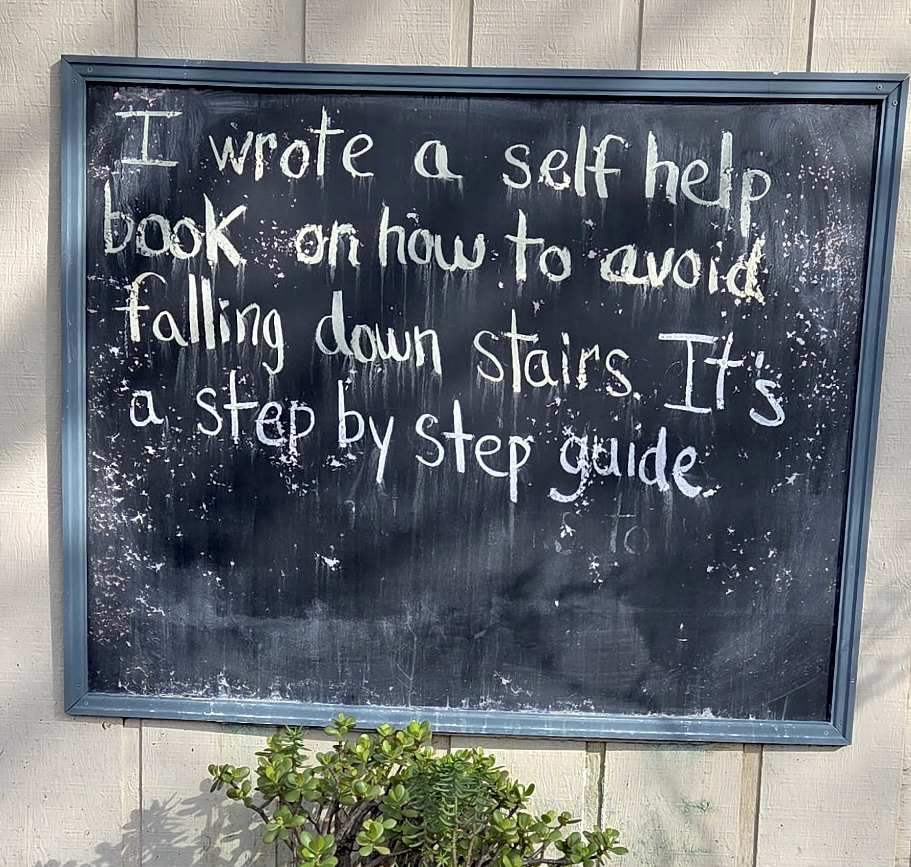 I wrote a self help
book on how to avoid
falling down stairs. It's
a step by step guide.